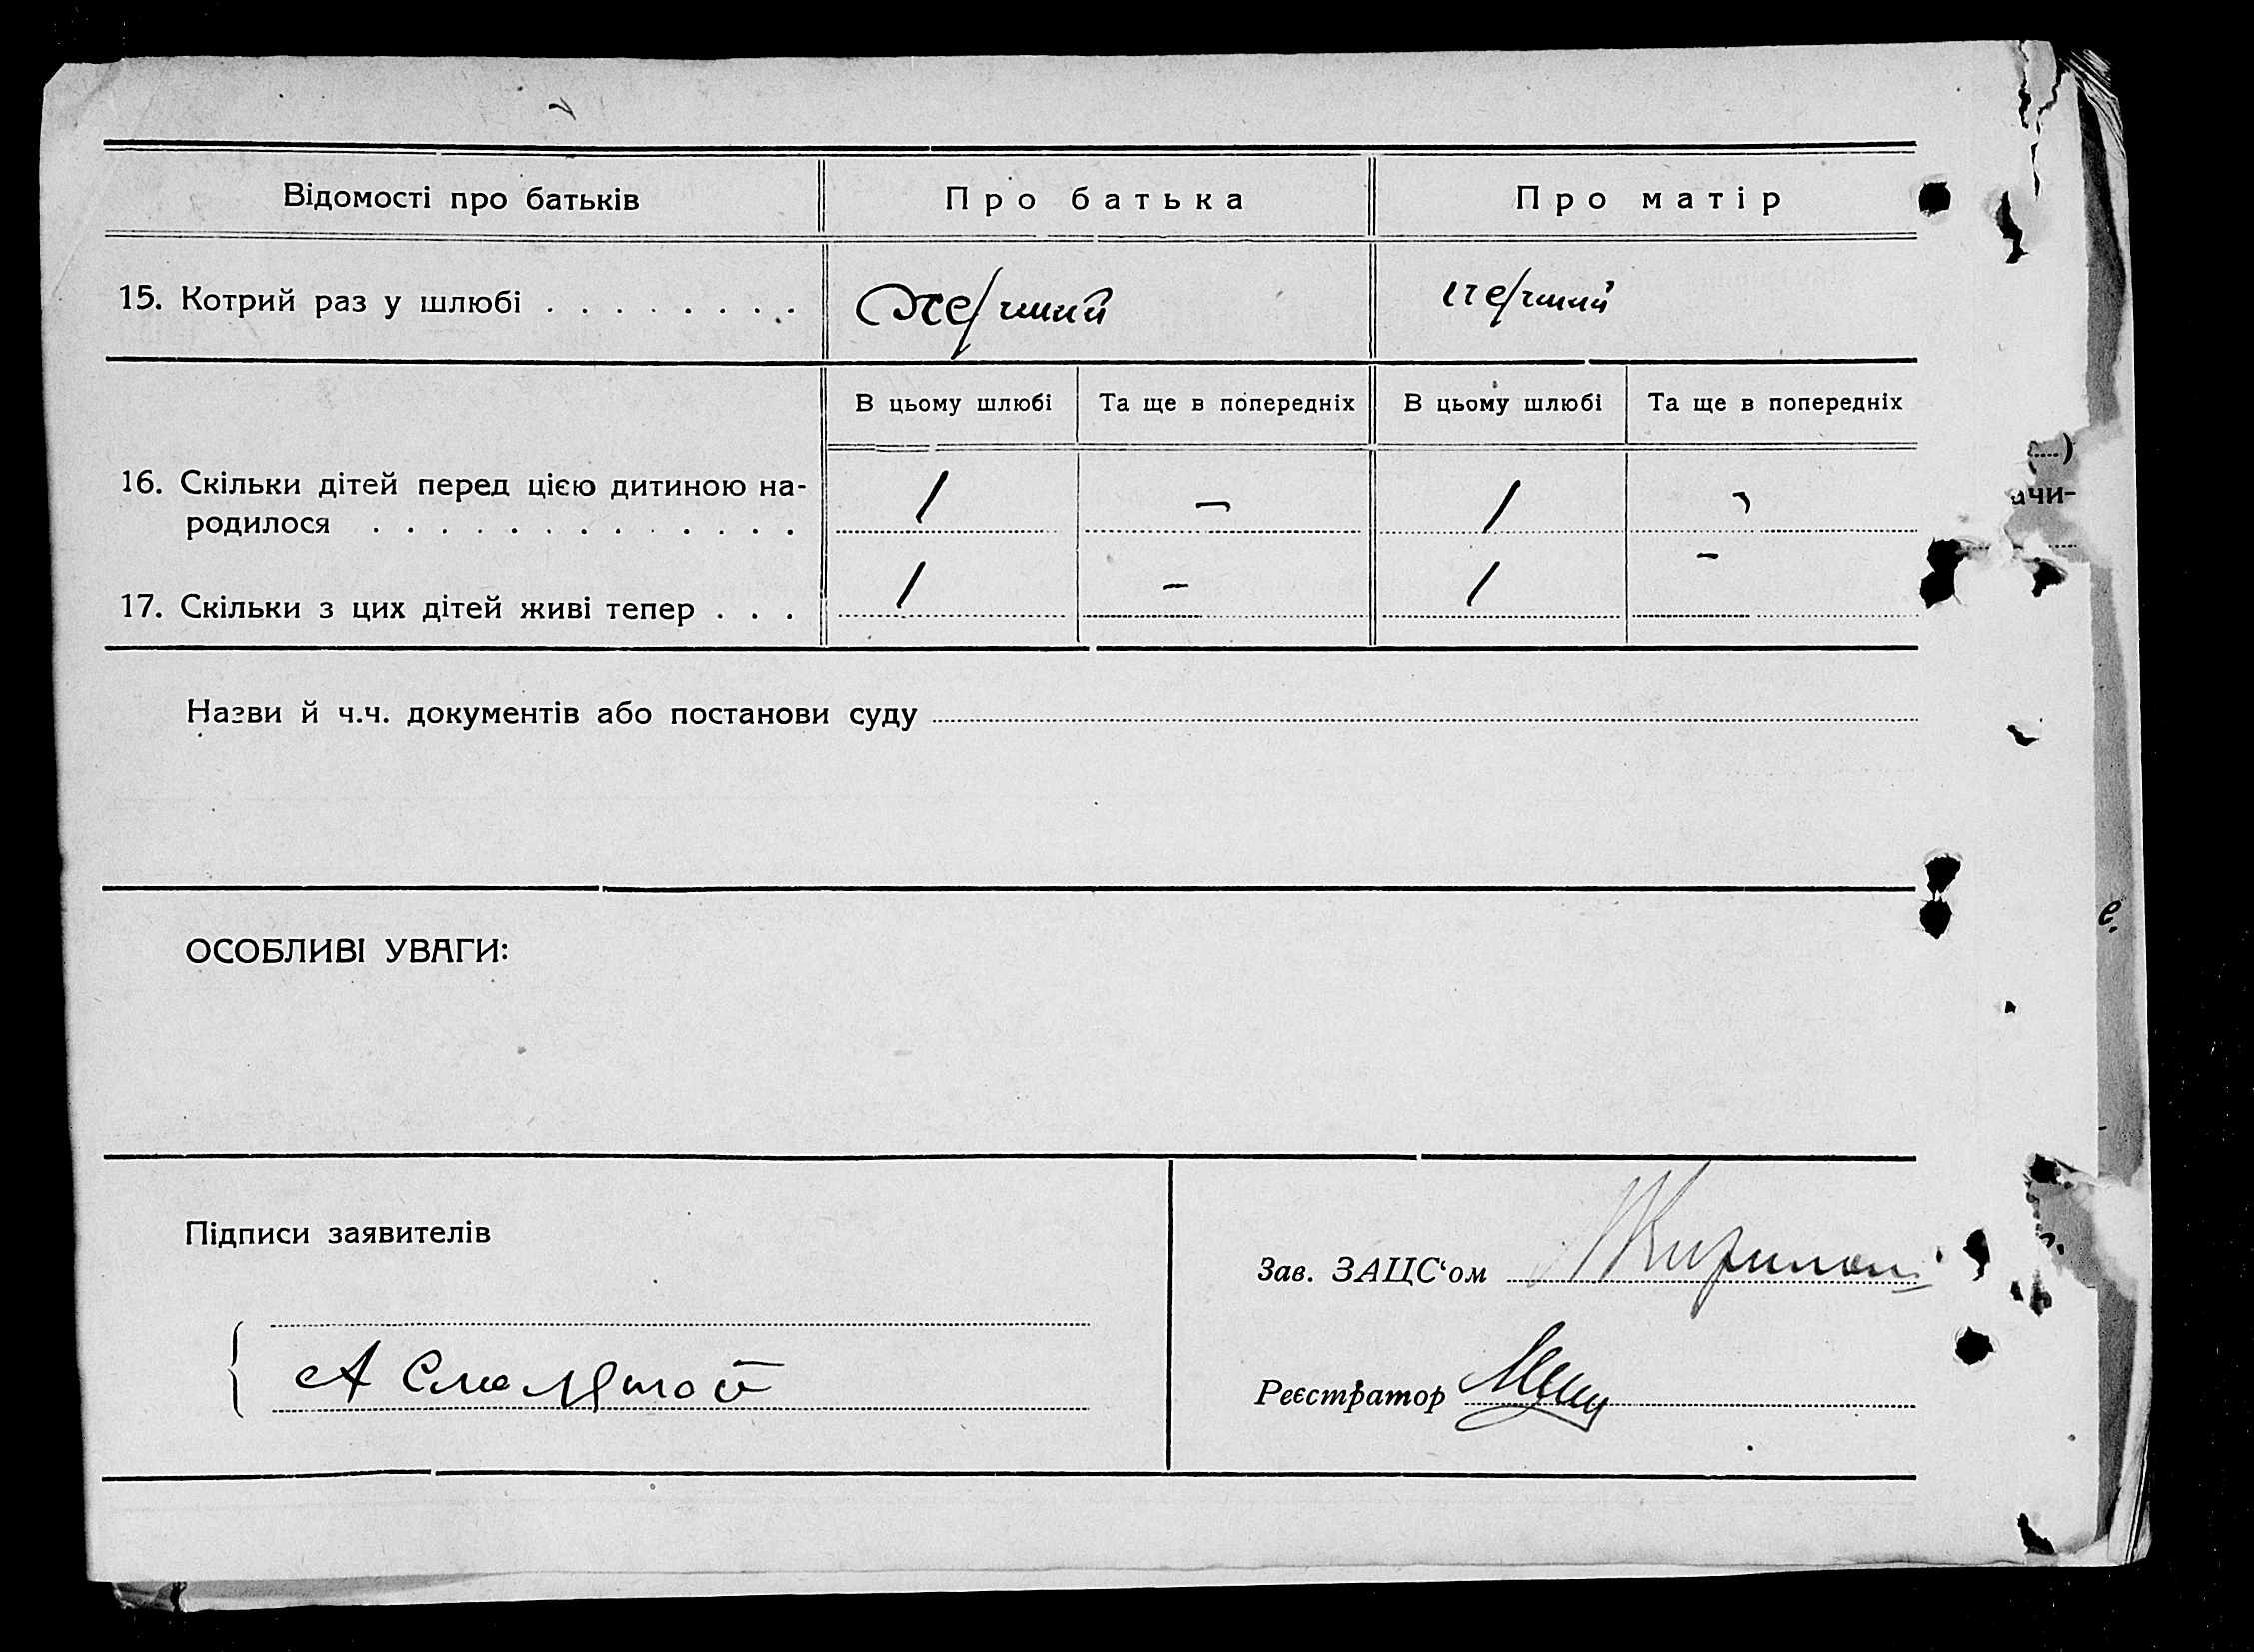 Відомості про батьків Про батька Про матір
15. Котрий раз у шлюбі . . . . . . . . перший перший
В цьому шлюбі Та ще в попередніх В цьому шлюбі Та ще в попередніх
16. Скільки дітей перед цією дитиною на-
родилося . . . . . . . . . . . . . 1 - 1 -
17. Скільки з цих дітей живі тепер . . . 1 - 1 -
Назви й ч.ч. документів або постанови суду
ОСОБЛИВІ УВАГИ:
Підписи заявителів
Зав. ЗАЦС‘ом
А
Реєстратор